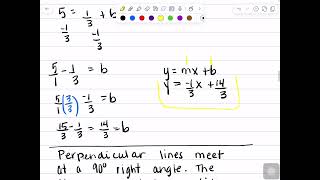 5 = 1/3 + b
-1/3 -1/3
5/1 - 1/3 = b
5/1 (3/3) - 1/3 = b
15/3 - 1/3 = 14/3 = b
y = mx + b
y = -1/3 x + 14/3
Perpendicular lines meet
at a 90° right angle. The